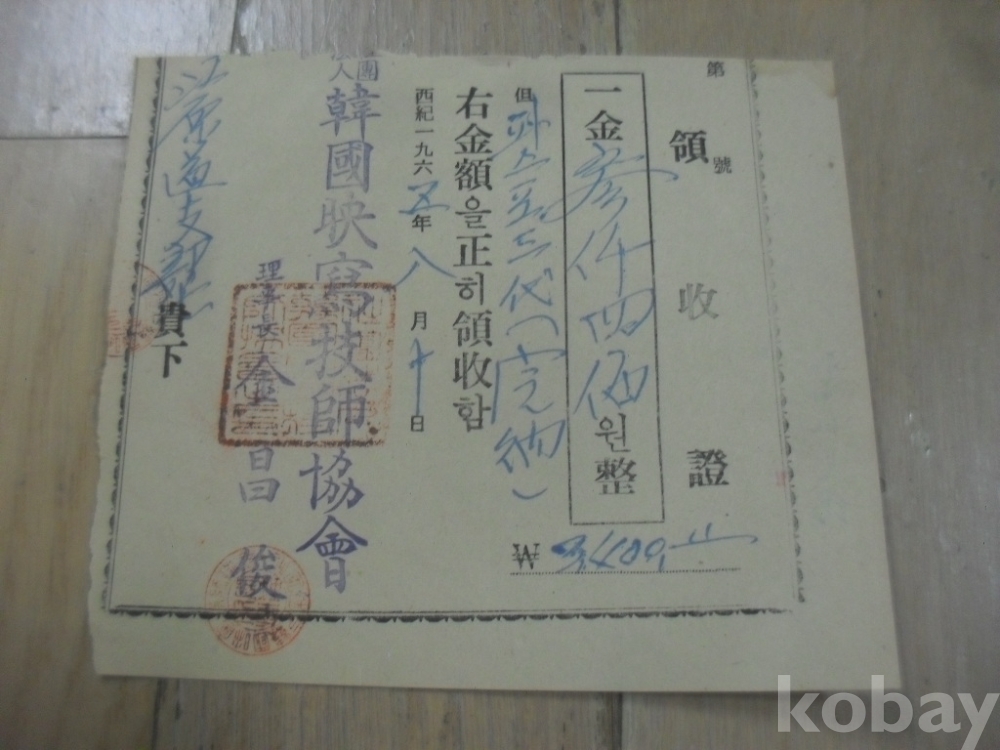 第 號
領收證
一金 參仟四佰 원整
₩ 3,400,-
但 파스포드代(完納)
右金額을正히領收함
西紀一九六五年 八月 十日
人團
韓國映寫技師協會
理事長 金昌俊
江原道支部 貴下
kobay